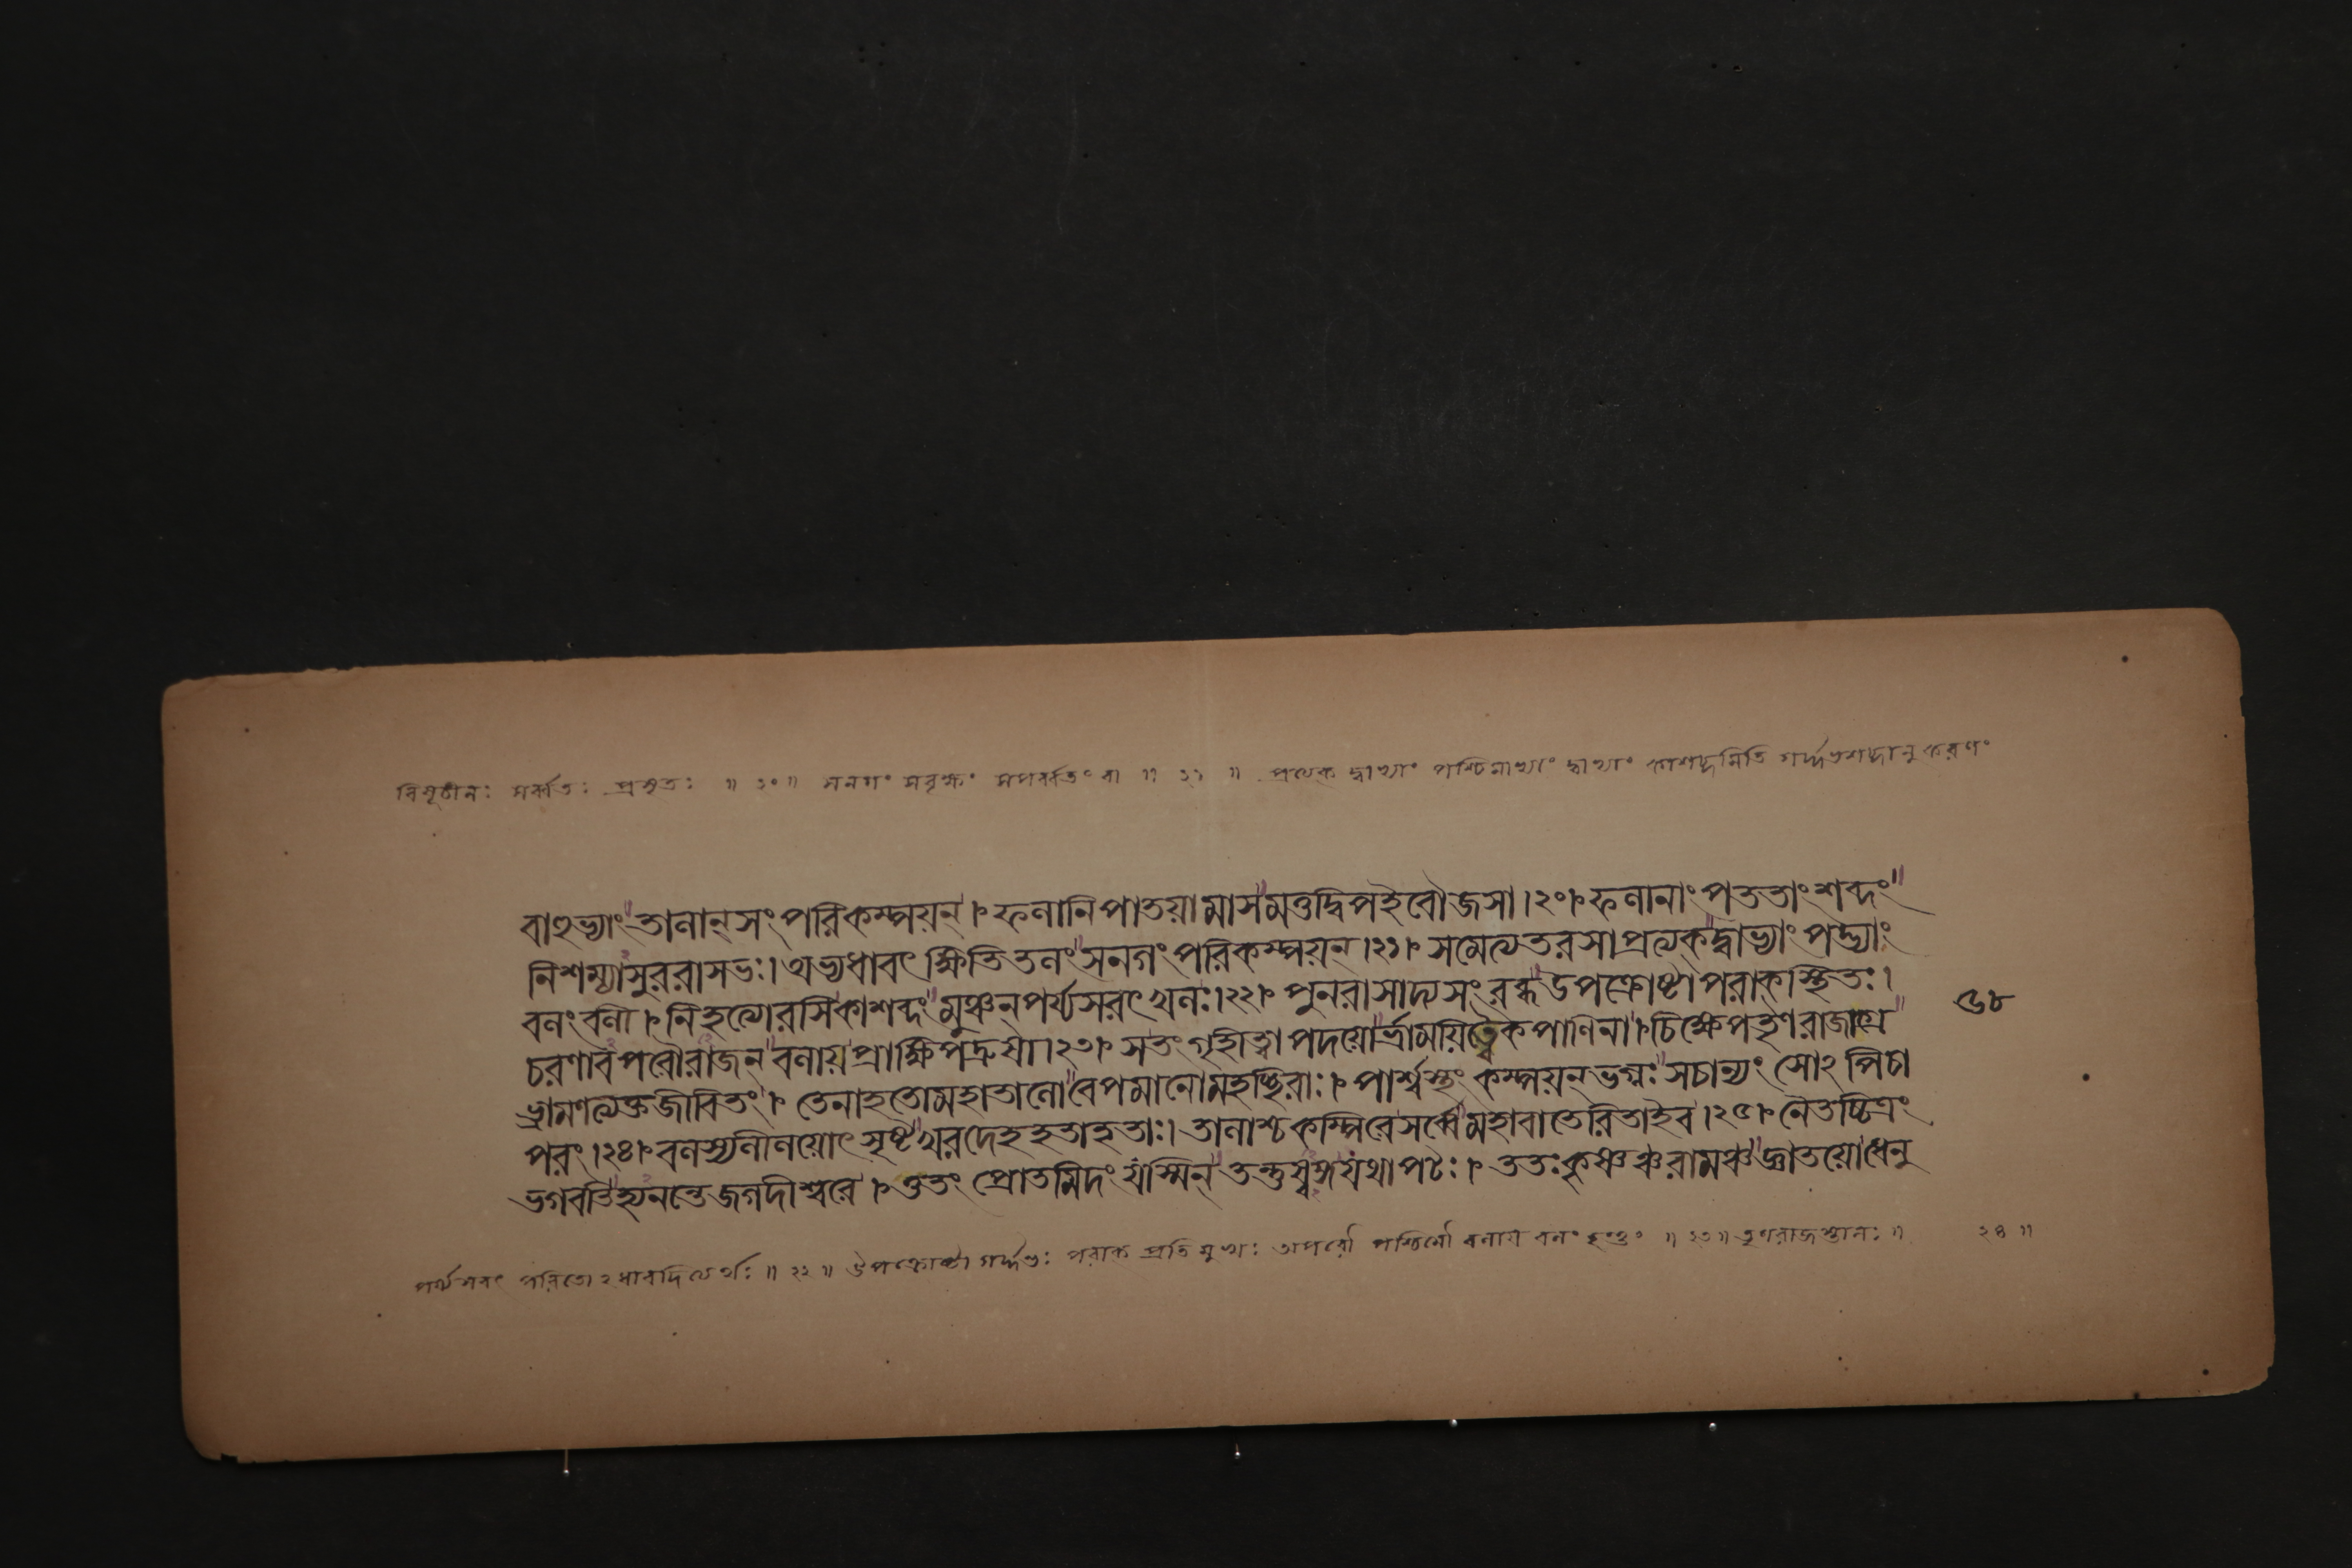 বিমূঢীনঃ সর্ব্বতঃ প্রসৃতঃ ॥ ২০ ॥ সনগং সবৃক্ষং সপর্ব্বতং বা ॥ ২১ ॥ প্রত্যেক দ্বাভ্যাং পশ্চিমাভ্যাং দ্বাভ্যাং কাশব্দমিতি গর্দ্দভশব্দানুকরণং
বাহুভ্যাং তালান্ সং পরিকম্পয়ন্ । ফলানিপাতয়ামাসমত্তদ্বিপইবৌজসা ।২০। ফলানাং পততাং শব্দং
নিশম্যাসুররাসভঃ। অভ্যধাবৎ ক্ষিতিতলং সনগং পরিকম্পয়ন ।২১। সমেত্যতরসাপ্রত্যক্দ্বাভ্যাং পদ্ভ্যাং
বলংবলী । নিহত্যোরসিকাশব্দং মুঞ্চন্পর্য্যসরৎ খলঃ।২২। পুনরাসাদ্যসংরব্ধউপক্রোষ্টাপরাক্স্থিতঃ।
চরণাবপরৌরাজন্ বলায়প্রাক্ষিপদ্রুষা।২৩। সতংগৃহীত্বাপদয়োর্ভ্রাময়িত্বৈকপাণিনা। চিক্ষেপতৃণরাজাগ্রে
ভ্রামণত্যক্তজীবিতং । তেনাহতোমহাতালোবেপমানোমহচ্ছিরাঃ। পার্শ্বস্থং কম্পয়ন্ ভগ্নঃ সচান্যং সোঽপিচা
পরং ।২৪। বলস্যলীলয়োৎসৃষ্টখরদেহহতাহতাঃ। তালাশ্চকম্পিরেসর্ব্বেমহাবাতেরিতাইব ।২৫। নৈতচ্চিত্রং
ভগবতিহ্যনন্তেজগদীশ্বরে । ওতং প্রোতমিদং যস্মিন্ তন্তুষ্বঙ্গযথাপটঃ । ততঃকৃষ্ণঞ্চরামঞ্চজ্ঞাতয়োধেনু
৫৮
পর্য্যসরৎ পরিতোঽধাবদিত্যর্থঃ ॥ ২২ ॥ উপক্রোষ্টা গর্দ্দভঃ পরাক প্রতিমুখঃ অপরৌ পশ্চিমৌ বলায় বলং হংতুং ॥ ২৩ ॥ তৃণরাজস্তালঃ ॥ ২৪ ॥